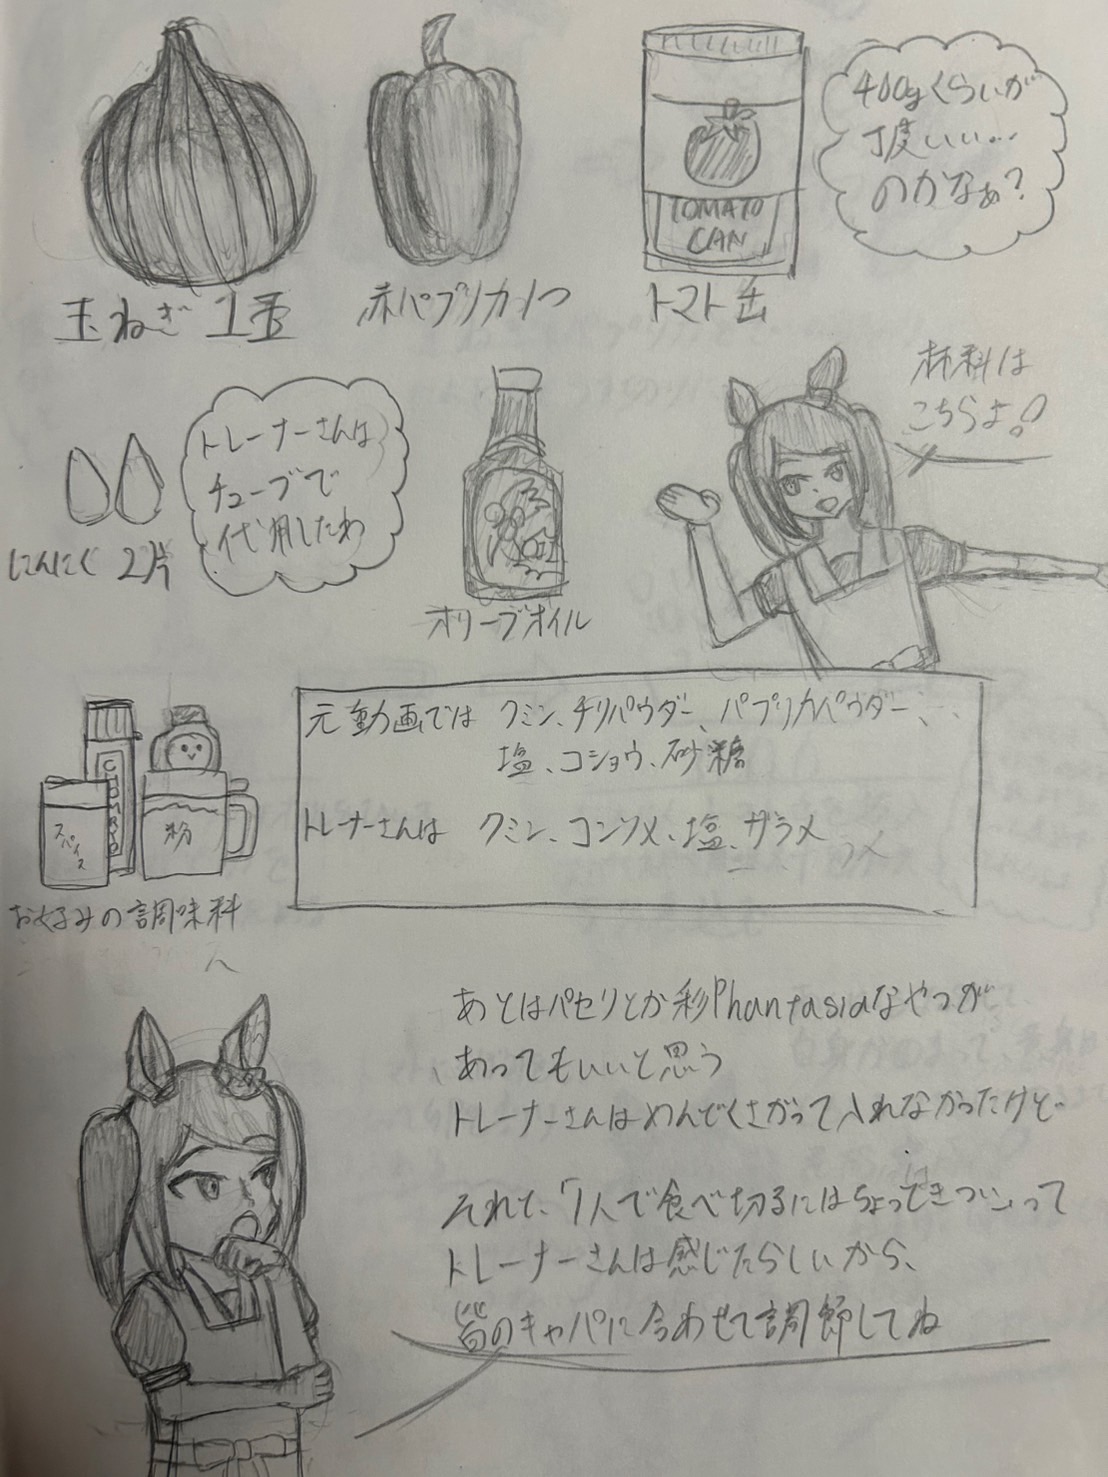 玉ねぎ 1玉
赤パプリカ1つ
TOMATO
CAN
トマト缶
400gくらいが
丁度いい…
のかなぁ?
にんにく 2片
トレーナーさんは
チューブで
代用したわ
オリーブオイル
材料は
こちらよ!
スパイス
粉
お好みの調味料
元動画では クミン、チリパウダー、パプリカパウダー、
塩、コショウ、砂糖
トレーナーさんは クミン、コンソメ、塩、ザラメ
あとはパセリとか彩Phantasiaなやつが
あってもいいと思う
トレーナーさんはめんどくさがって入れなかったけど
それと、1人で食べ切るにはちょっときついって
トレーナーさんは感じたらしいから、
皆のキャパに合わせて調節してね